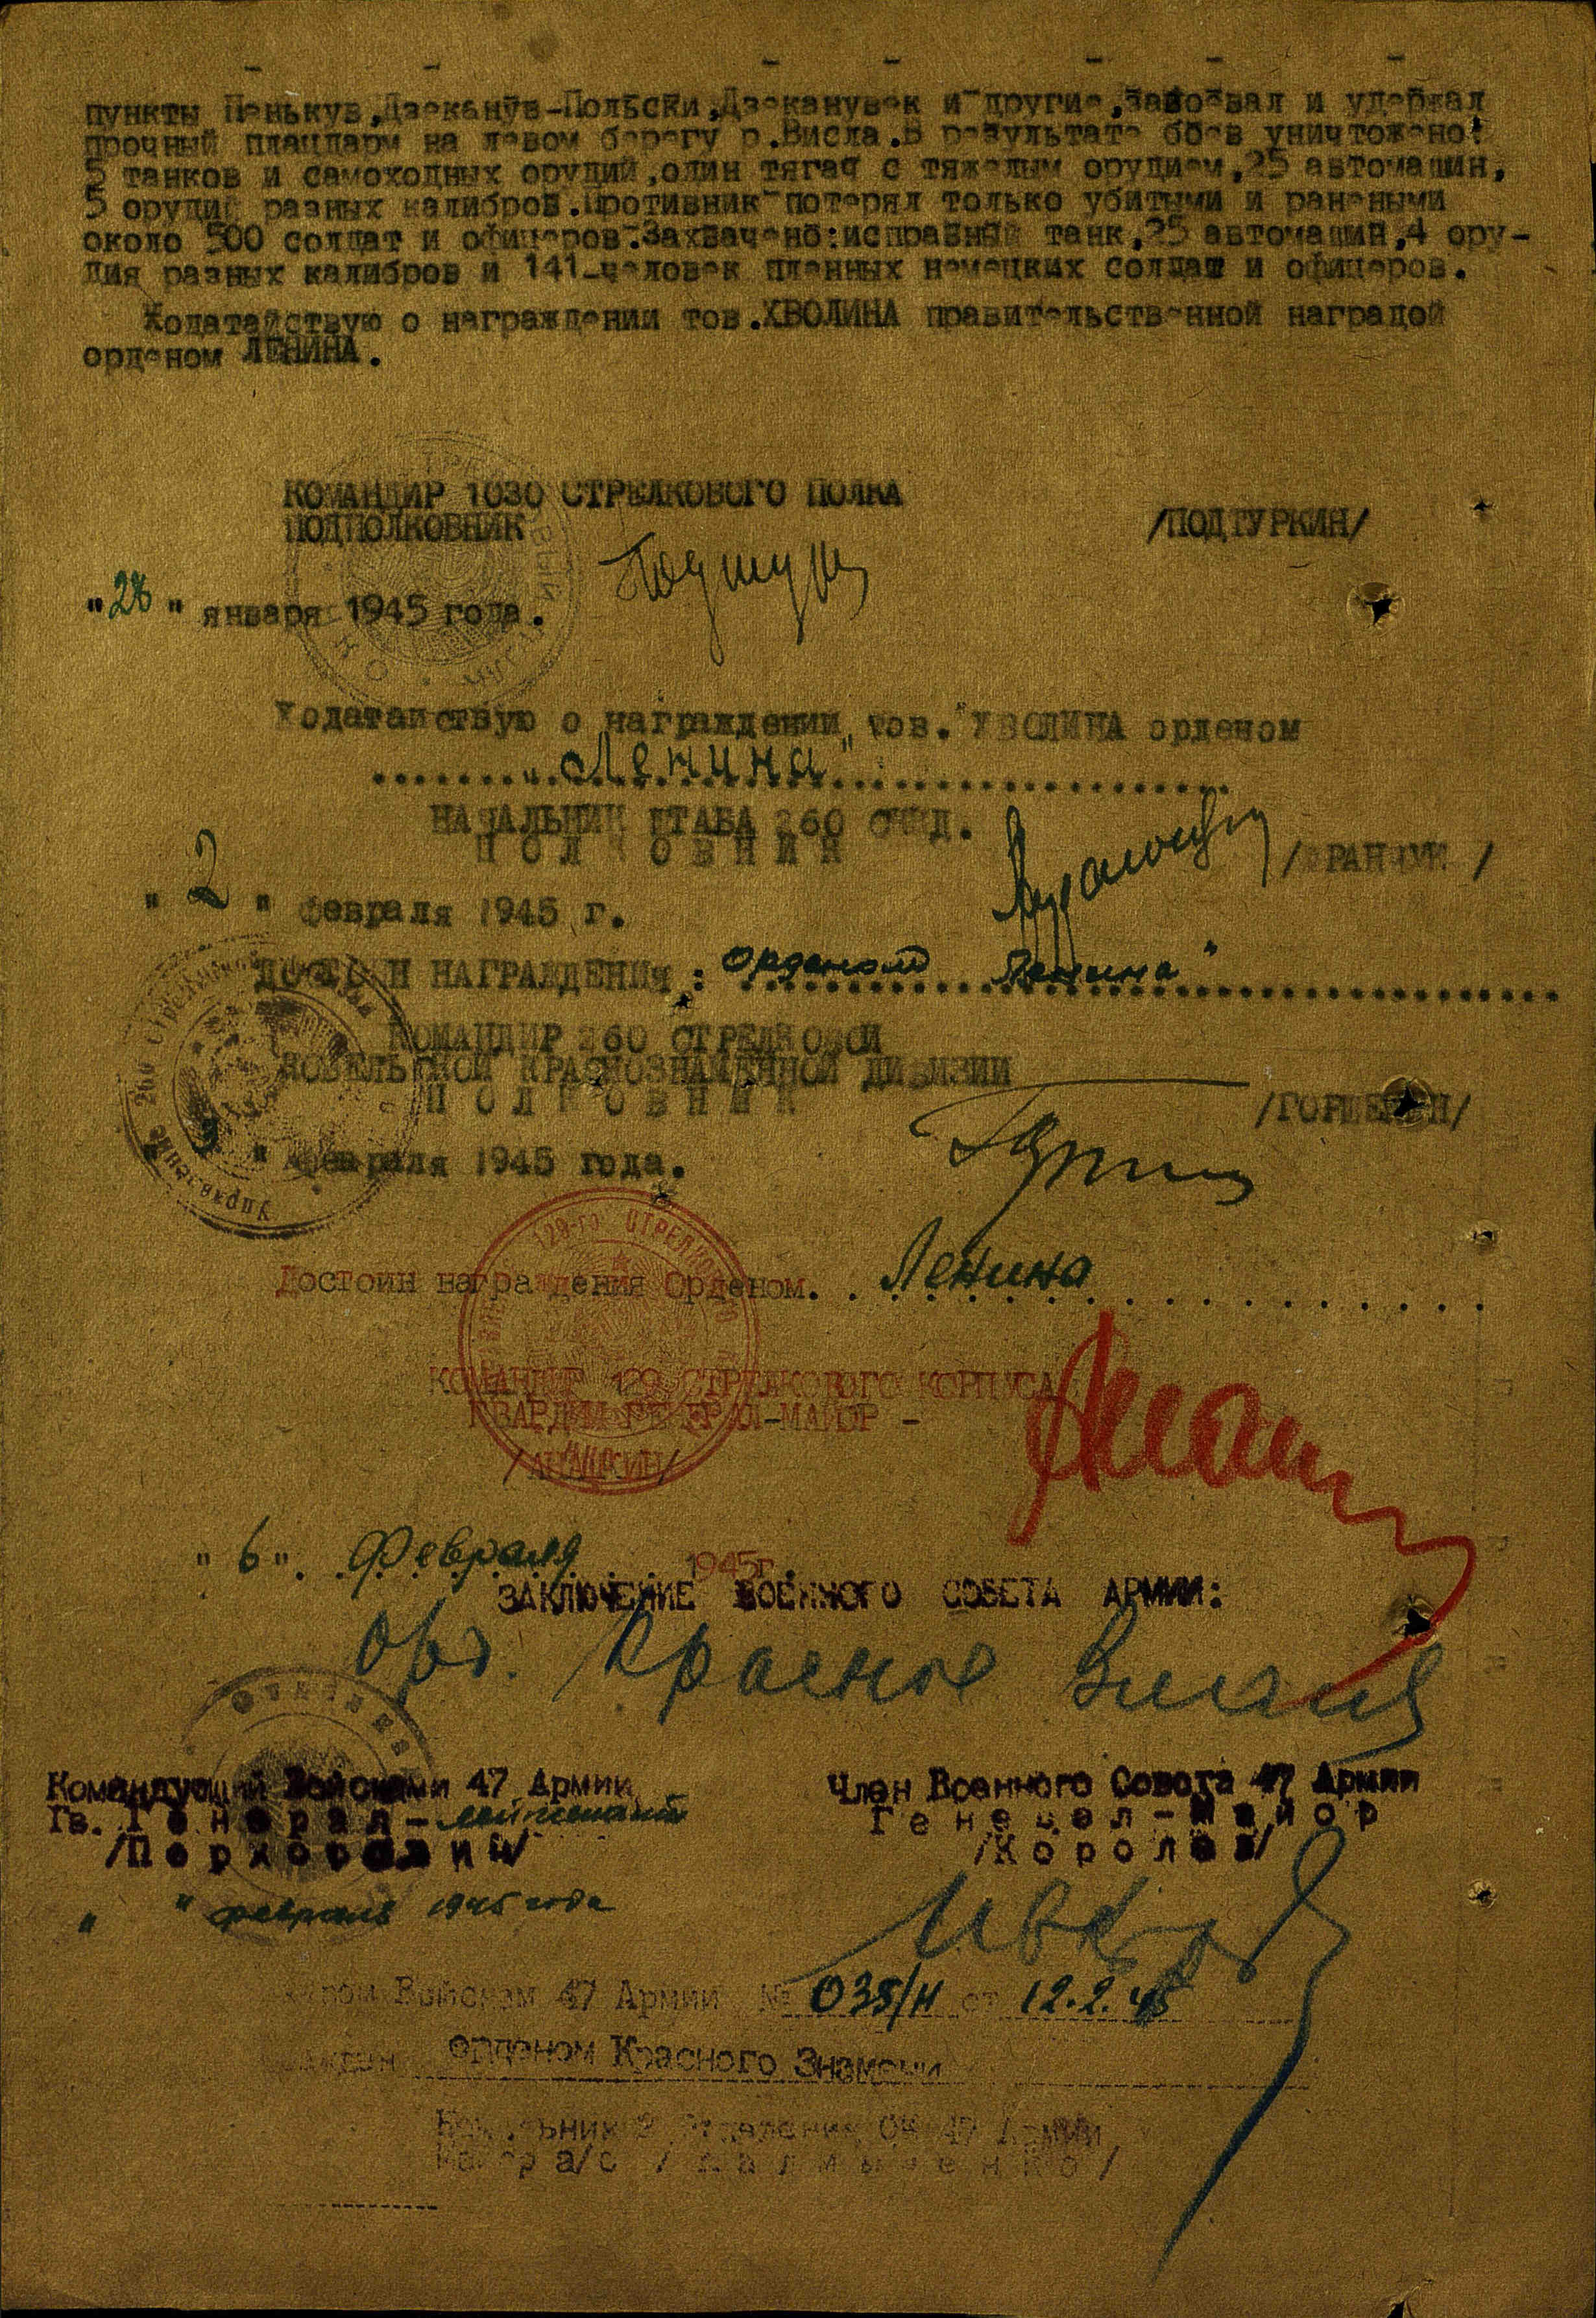 пункты Пенькув,Дзеканув-Польски,Дзеканувек и другие,завоевал и удержал
прочный плацдарм на левом берегу р.Висла.В результате боев уничтожено:
5 танков и самоходных орудий,один тягач с тяжелым орудием,25 автомашин,
5 орудий разных калибров.Противник потерял только убитыми и ранеными
около 500 солдат и офицеров.Захвачено:исправный танк,25 автомашин,4 ору-
дия разных калибров и 141-человек пленных немецких солдат и офицеров.
Ходатайствую о награждении тов.ХВОЛИНА правительственной наградой
орденом ЛЕНИНА.
КОМАНДИР 1030 СТРЕЛКОВОГО ПОЛКА
ПОДПОЛКОВНИК /ПОДТУРКИН/
"28" января 1945 года.
Ходатайствую о награждении тов. ХВОЛИНА орденом
"Ленина"
НАЧАЛЬНИК ШТАБА 260 СККД.
ПОЛКОВНИК
"2" февраля 1945 г.
ДОСТОИН НАГРАЖДЕНИЯ: орденом "Ленина"
КОМАНДИР 260 СТРЕЛКОВОЙ
КОВЕЛЬСКОЙ КРАСНОЗНАМЕННОЙ ДИВИЗИИ
ПОЛКОВНИК
/ГОРШЕНИН/
" " февраля 1945 года.
Достоин награждения Орденом. . Ленина
КОМАНДИР 129 СТРЕЛКОВОГО КОРПУСА
ГВАРДИИ ГЕНЕРАЛ-МАЙОР -
/АНАШКИН/
"6". Февраля 1945г.
ЗАКЛЮЧЕНИЕ ВОЕННОГО СОВЕТА АРМИИ:
Орд. Красное Знамя
Командующий Войсками 47 Армии Член Военного Совета 47 Армии
Гв. Генерал-лейтенант Генерал-Майор
/Перхорович/ /Королев/
" " февраль 1945 года
Войскам 47 Армии № 035/Н от 12.2.45
Орденом Красного Знамени
Отделения ОК 47 Армии
Майор а/с